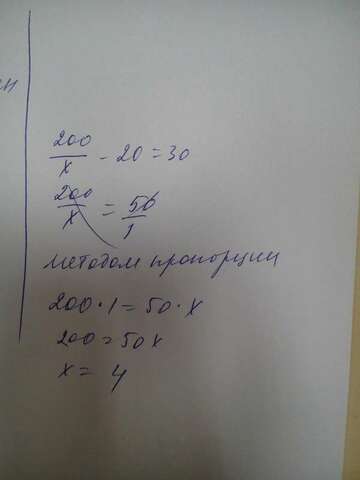 ен
200/x - 20 = 30
200/x = 50/1
методом пропорции
200 · 1 = 50 · x
200 = 50x
x = 4